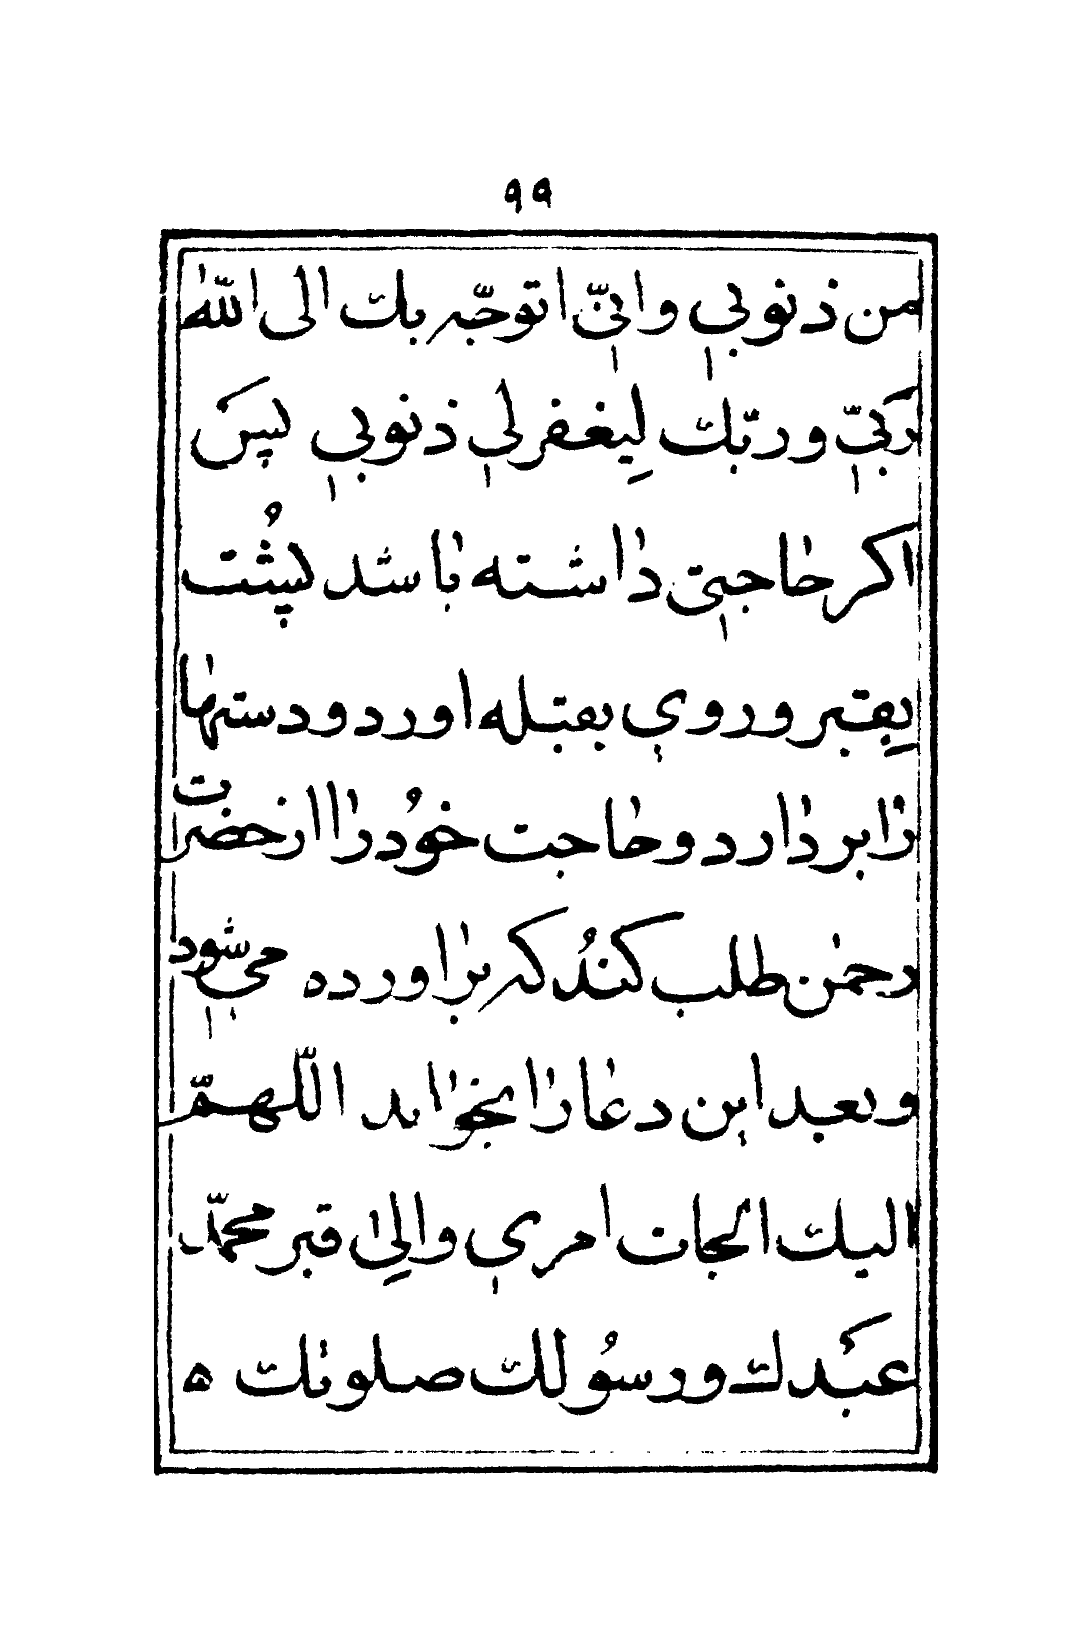 ٩٩
من ذنوبي واني اتوجّه بك الى اللّه
ربّي وربّك لِيغفر لي ذنوبي پس
اكر حاجتي داشته باشد پُشت
بِقبر وروي بقبله اورد ودستها
را بردارد وحاجت خُود را از حضرت
رحمن طلب كنُد كه براورده مي شود
وبعد اين دعا را بخواند اللّهمّ
اليك الجات امري والِى قبر محمّد
عبدك ورسُولك صلوتك ه